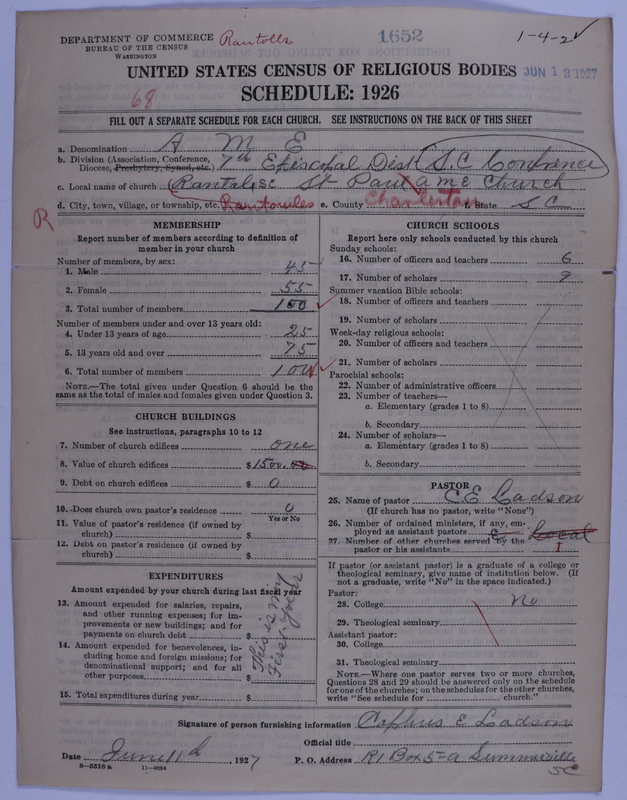 DEPARTMENT OF COMMERCE
BUREAU OF THE CENSUS
WASHINGTON
Rantolls
1652
1-4-2
UNITED STATES CENSUS OF RELIGIOUS BODIES
JUN 13 1927
68
SCHEDULE: 1926
FILL OUT A SEPARATE SCHEDULE FOR EACH CHURCH. SEE INSTRUCTIONS ON THE BACK OF THIS SHEET
a. Denomination A M E
b. Division (Association, Conference, Diocese, Presbytery, Synod, etc.) 7th Episcopal Dist S.C. Conference
c. Local name of church St Paul A M E Church
d. City, town, village, or township, etc. Rantowles e. County Charleston f. State S C
R
MEMBERSHIP
Report number of members according to definition of member in your church
Number of members, by sex:
1. Male 45
2. Female 55
3. Total number of members 100
Number of members under and over 13 years old:
4. Under 13 years of age 25
5. 13 years old and over 75
6. Total number of members 100
NOTE.—The total given under Question 6 should be the same as the total of males and females given under Question 3.
CHURCH BUILDINGS
See instructions, paragraphs 10 to 12
7. Number of church edifices one
8. Value of church edifices $1500.00
9. Debt on church edifices $ 0
10. Does church own pastor's residence 0
Yes or No
11. Value of pastor's residence (if owned by church) $
12. Debt on pastor's residence (if owned by church) $
EXPENDITURES
Amount expended by your church during last fiscal year
13. Amount expended for salaries, repairs, and other running expenses; for improvements or new buildings; and for payments on church debt $
14. Amount expended for benevolences, including home and foreign missions; for denominational support; and for all other purposes $
15. Total expenditures during year $
This is my
First year
CHURCH SCHOOLS
Report here only schools conducted by this church
Sunday schools:
16. Number of officers and teachers 6
17. Number of scholars 9
Summer vacation Bible schools:
18. Number of officers and teachers
19. Number of scholars
Week-day religious schools:
20. Number of officers and teachers
21. Number of scholars
Parochial schools:
22. Number of administrative officers
23. Number of teachers—
a. Elementary (grades 1 to 8)
b. Secondary
24. Number of scholars—
a. Elementary (grades 1 to 8)
b. Secondary
PASTOR
25. Name of pastor C E Ladson
(If church has no pastor, write "None")
26. Number of ordained ministers, if any, employed as assistant pastors Local
27. Number of other churches served by the pastor or his assistants 1
If pastor (or assistant pastor) is a graduate of a college or theological seminary, give name of institution below. (If not a graduate, write "No" in the space indicated.)
Pastor:
28. College No
29. Theological seminary
Assistant pastor:
30. College
31. Theological seminary
NOTE.—Where one pastor serves two or more churches, Questions 28 and 29 should be answered only on the schedule for one of the churches; on the schedules for the other churches, write "See schedule for church."
Signature of person furnishing information Cophus E Ladson
Official title
Date June 11th, 1927 P. O. Address R1 Box 5-a Summerville
SC
8-5518 a 11-9864